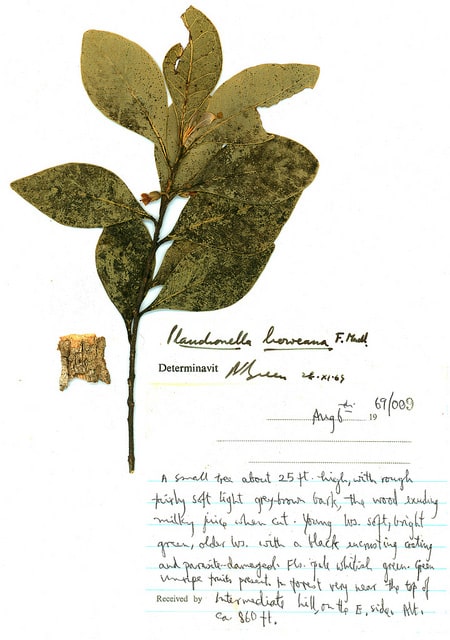 Planchonella howeana F. Muell.
Determinavit P S Green 26.XI.69
Aug 6th 1969/009
A small tree about 25 ft. high, with rough
fairly soft light grey-brown bark, the wood exuding
milky juice when cut. Young lvs. soft, bright
green, older lvs. with a black encrusting coating
and parasite-damaged. Fls. pale whitish green. Green
unripe fruits present. In forest very near the top of
Received by Intermediate hill, on the E. side. Alt.
ca 860 ft.